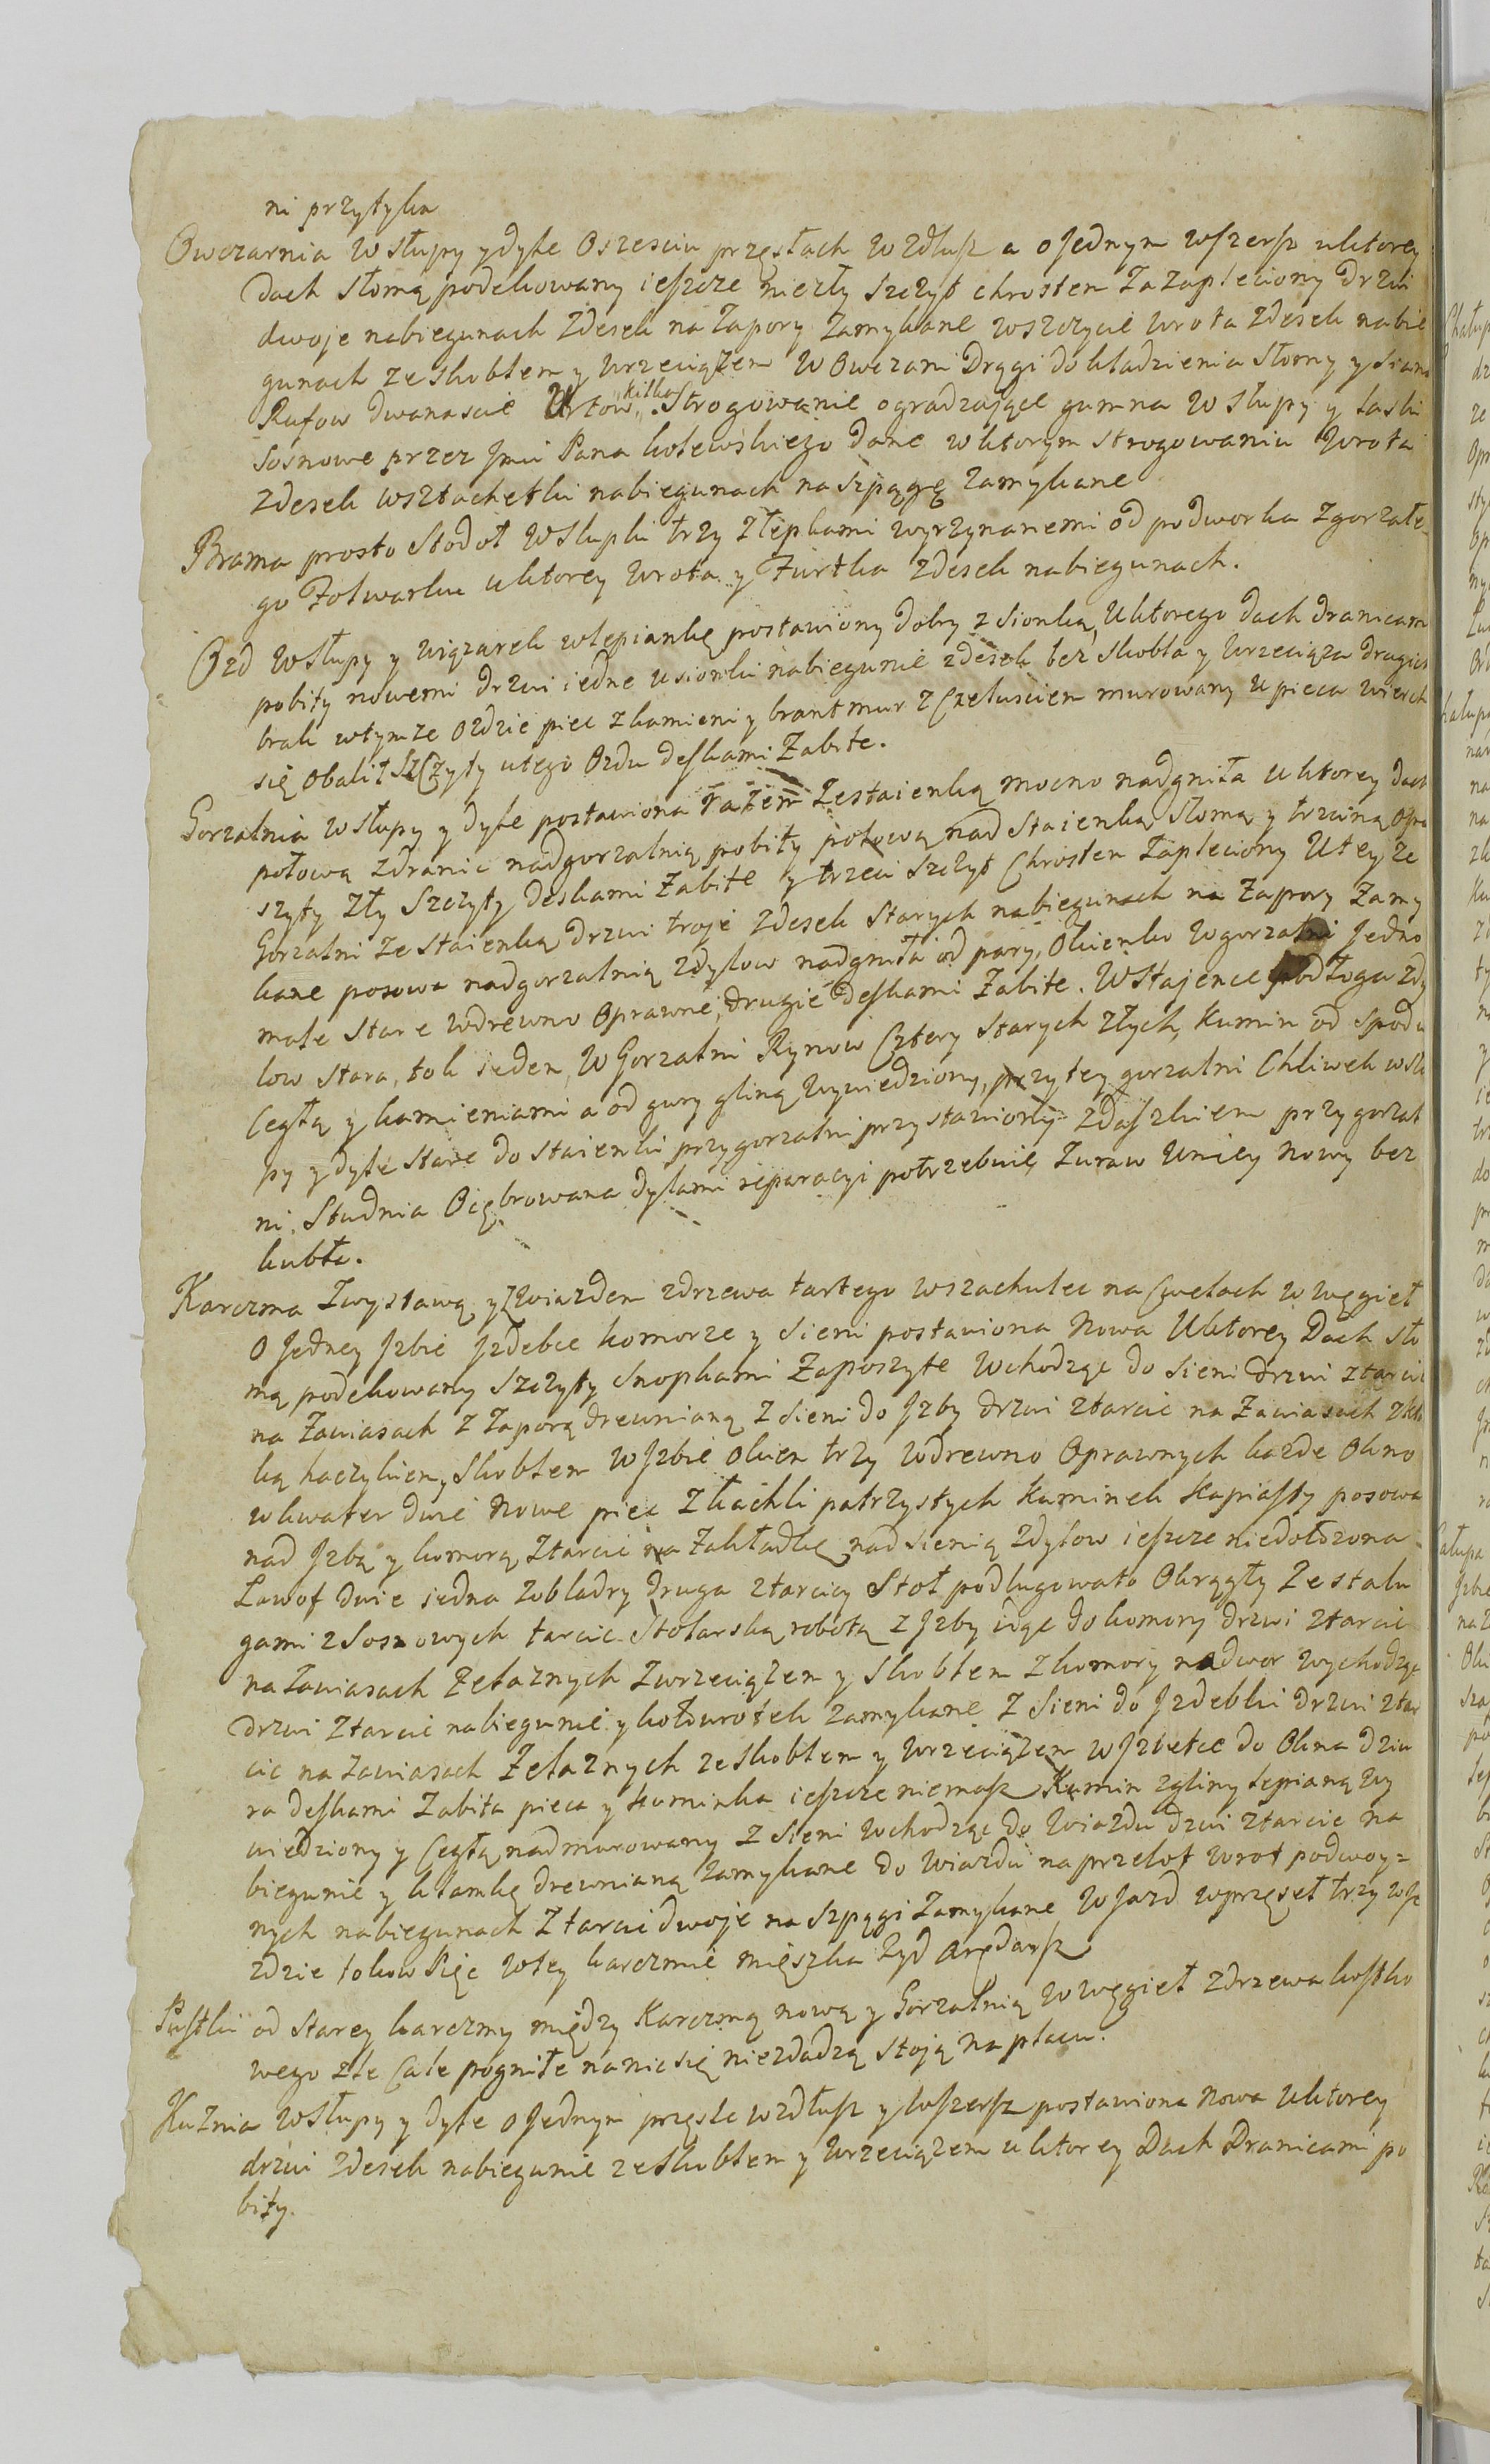 ni przytyka
Owczarnia w słupy y dyle o szesciu przęsłach wzdłusz a o jednym wszersz u ktorey
dach słomą podchowany ieszcze niezły szczyt chrostem zazapleciony drzwi
dwoje na biegunach z desek na zapory zamykane w szczycie wrota z desek na bie
gunach ze skoblem y wrzeciązem w Owczarni Drągi do kładzienia słomy y siana
Rufow dwanascie kilka Strogowanie ogradzające gumna w słupy y laski
sosnowe przez Jmci Pana kolewskiego dane w ktorym strogowaniu wrota
z desek w sztachetki na biegunach na szpągę zamykane
Brama prosto stodoł w słupki trzy z łepkami wyrzynanemi od podworka zgorzałe-
go Folwarku u ktorey wrota y Furtka z desek na biegunach.
Ozd w słupy y wiązarek w lepiankę postawiony dobry z sionką, u ktorego dach dranicami
pobity nowemi drzwi iedne u sionki na biegunie z desek bez skobla y wrzeciąza drugich
brak w tymze ozdzie piec z kamieni y brantmur z czeluscien murowany u pieca wierch
się obalił szczyty u tego Ozdu deskami zabite.
Gorzalnia w słupy y dyle postawiona razem ze staienką mocno nadgniła u ktorey dach
połową z dranic nad gorzalnią pobity połową nad staienką słomą y trzciną opo
szyty zły szczyty deskami zabite y trzeci szczyt chrostem zapleciony u tey ze
Gorzalni ze staienką drzwi troje z desek starych na biegunach na zapory zamy
kane posowa nad gorzalnią z dylow nadgniła od pary, okienko w gorzalni jedno
małe stare w drewno oprawne, drugie deskami zabite. W stajence podłoga z dy
low stara, żłob ieden, w Gorzalni Rynow cztery starych złych, kumin od spodu
cegłą y kamieniami a od gury gliną wywiedziony, przy tey gorzalni Chliwek w słu
py y dyle stare do staienki przy gorzalni przystawiony z daszkiem przy gorzal
ni. Studnia ocębrowana dylami reparacyi potrzebuie, żuraw u niey nowy bez
kubła.
Karczma z wystawą y z wiazdem z drzewa tartego w szachulec na cwelach w węgieł
o jedney Jzbie Jzdebce komorze y sieni postawiona nowa u ktorey Dach sło
mą podchowany szczyty snopkami zaposzyte wchodząc do sieni drzwi z tarcic
na zawiasach z zaporą drewnianą z sieni do Jzby drzwi z tarcic na zawiasach z kla
ką haczykiem y skoblem w Jzbie okien trzy w drewno oprawnych kazde okno
w kwater dwie nowe piec z kachli patrzystych kuminek kapiasty posowa
nad Jzbą y komorą z tarcic na zakładkę nad sienią z dylow ieszcze niedołozona
Ław dwie iedna z obladry druga z tarcicy Stoł podługowato okrągły ze stalu
gami z sosnowych tarcic stolarską robotą z Jzby idąc do komory drzwi z tarcic
na zawiasach żelaznych z wrzeciązem y skoblem z komory na dwor wychodząc
drzwi z tarcic na biegunie y kołowrotek zamykane z sieni do Jzdebki drzwi z tar
cic na zawiasach żelaznych ze skoblem y wrzeciązem w Jzbetce do okna dziu
ra deskami zabita pieca y kuminka ieszcze niemasz Kumin z gliny lepianą wy
wiedziony y cegłą nadmurowany z sieni wchodząc do wiazdu dzwi z tarcic na
biegunie y klamkę drewnianą zamykane do wiazdu na przelot wrot podwoy=
nych na biegunach z tarcic dwoje na szpągi zamykane w Jazd w przęseł trzy w Ja
zdzie w tey karczmie mięszka żyd arędarz
Pustki od starey karczmy między karczmą nową y Gorzalnią w węgieł z drzewa kostko
wego złe całe pogniłe na nic się niezdadzą stoją na placu.
Kuznia w słupy y dyle o jednym przęsle wzdłusz y wszersz postawiona nowa u ktorey
drzwi z desek na biegunie ze skoblem y wrzeciązem u ktorey Dach Dranicami po
bity.